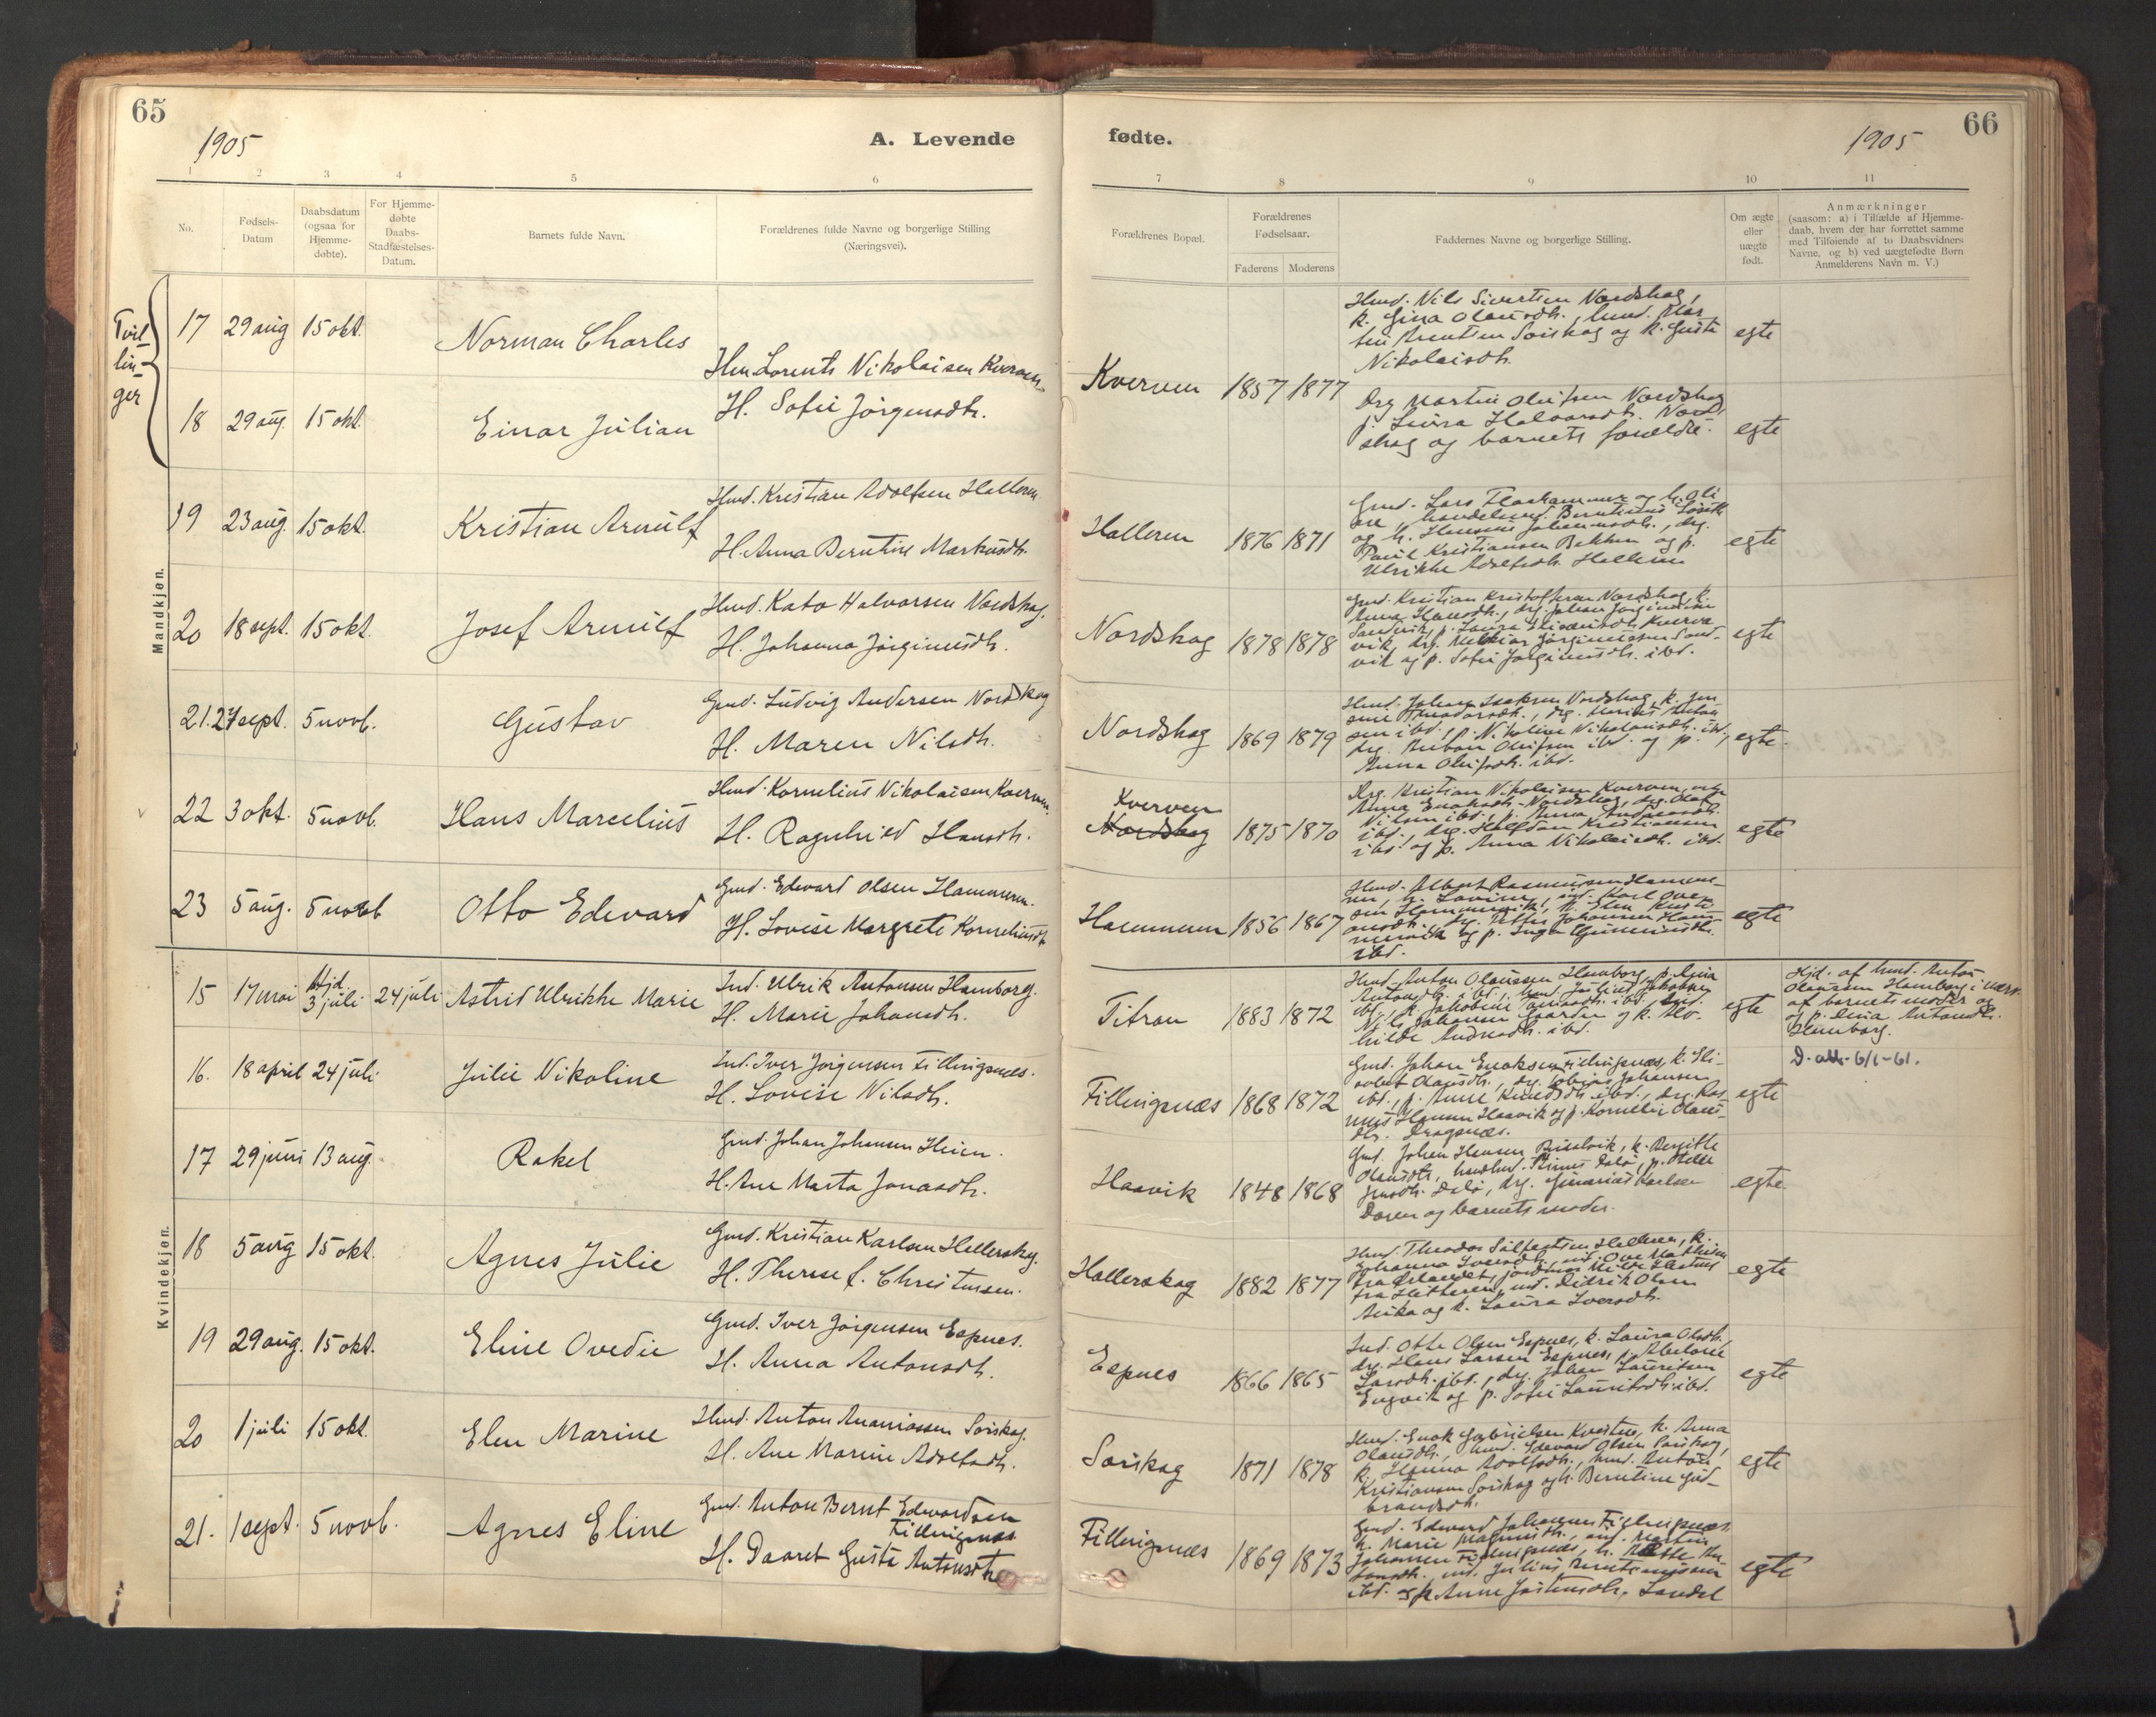 65
1905
A. Levende
fødte.
1905
66
1
2
3
4
5
6
7
8
9
10
11
No.
Fødsels-
Datum
Daabsdatum
(ogsaa for
Hjemme-
døbte).
For Hjemme-
døbte
Daabs-
Stadfæstelses-
Datum.
Barnets fulde Navn.
Forældrenes fulde Navne og borgerlige Stilling
(Næringsvei).
Forældrenes Bopæl.
Forældrenes
Fødselsaar.
Faderens
Moderens
Faddernes Navne og borgerlige Stilling.
Om ægte
eller
uægte
født.
Anmærkninger
(saasom: a) i Tilfælde af Hjemme-
daab, hvem der har forrettet samme
med Tilføiende af to Daabsvidners
Navne, og b) ved uægtefødte Børn
Anmelderens Navn m. V.)
Tvil-
lin-
ger
Mandkjøn.
17 29 aug 15 okt. Norman Charles
Hm. Lorents Nikolaisen Kverven
H. Sofie Jörgensdtr.
Kverven 1857 1877
Hmd. Nils Sivertsen Nordskag,
k. Gina Olausdtr., hmd. Mar
tin Arentsen Sörskag og k. Gusta
Nikolaisdtr.
egte
18 29 aug. 15 okt. Einar Julian
Drg Martin Olufsen Nordskag
p. Halvorsdtr. Nord
skag og barnets forældre.
egte
19 23 aug. 15 okt. Kristian Arnulf
Hmd. Kristian Adolfsen Halleren
H. Anna Berntine Markusdtr.
Halleren 1876 1871
Gmd. Lars og k. Oli
ne, handelsmd.
og k. Johannesdtr., drg.
Paul Kristiansen Bekken og p.
Ulrikke Adolfsdtr. Halleren
egte
20 18 sept. 15 okt. Josef Arnulf
Hmd. Kato Halvorsen Nordskag.
H. Johanna Jörginusdtr.
Nordskag 1878 1878
Gmd. Kristian Kristoffersen Nordskag, k.
Anna Hansdtr., drg. Johan Jörginusen
Sandvik, p. Laura
vik, drg. Jörginussen Sand-
vik og p. Sofie Jörginusdtr. ibd.
egte
21. 24 sept. 5 novb. Gustav
Gmd. Ludvig Andersen Nordskag
H. Maren Nilsdtr.
Nordskag 1869 1879
Hmd. Johan Isaksen Nordskag, k. Jen
sine drg.
sen ibd., p. Nikoline Nikolaisdtr. ibd.,
drg. Anton Olufsen ibd. og p.
Anna Olufsdtr. ibd.
egte.
22 3 okt. 5 novb. Hans Marcelius
Hmd. Kornelius Nikolaisen Kverven.
H. Ragnhild Hansdtr.
Kverven
Nordskag 1875 1870
Drg. Kristian Nikolaisen Kverven,
Anna Enoksdtr. Nordskag, drg. Olaf
Nilsen ibd., p. Anna
ibd., drg. Halfdan Kristiansen
ibd. og p. Anna Nikolaisdtr. ibd.
egte
23 5 aug. 5 novb Otto Edevard
Gmd. Edevard Olsen Hammeren.
H. Lovise Margrete Korneliusdtr
Hammeren 1856 1867
Hmd. Albert Rasmussen Hamme-
ren, k. Lovise, Karl Ove-
sen Hammervik, k. Elen Kristi
ansdtr., drg. Petter Johansen Ham-
mervik og p. Inga
ibd.
egte
Kvindekjøn.
15 17 mai Hjd. 3 juli 24 juli Astrid Ulrikke Marie
Ind. Ulrik Antonsen Hamborg.
H. Marie Johansdtr.
Titran 1883 1872
Hmd. Anton Olaussen Hamborg, p. Dina
Antonsdtr. ibd., hmd. Julius Jakobsen
ibd., k. Jakobine ibd., Ind.
Nils Johansen og k. Alv-
hilde ibd.
egte
Hjd. af hmd. Anton
Olaussen Hamborg i nærv.
af barnets moder og
og p. Dina Antonsdtr.
Hamborg.
16. 18 april 24 juli Julie Nikoline
Ind. Iver Jörgensen Fillingsnes.
H. Lovise Nilsdtr.
Fillingsnæs 1868 1872
Gmd. Johan Enoksen Fillingsnæs, k. Eli-
sabet Olausdtr., drg. Tobias Johansen
ibd., p. Anne Knudsdtr ibd., drg. Ras
mus Hansen Haavik og p. Kornelie Olaus-
dtr. Dragsnæs.
egte
D. att. 6/1-61.
17 29 juni 13 aug. Rakel
Gmd. Johan Johansen Heien.
H. Ane Marta Jonasdtr.
Haavik 1848 1868
Gmd. Johan Hansen k. Bergitte
Olausdtr., p.
Jensdtr. Dalö, drg. Karlsen
og barnets moder.
egte
18 5 aug 15 okt. Agnes Julie
Gmd. Kristian Karlsen Hallerskag.
H. Therese f. Christensen.
Hallerskag 1882 1877
Hmd. Theodor Halleren, k.
Johanna Iversdtr. Ove Mathisen
fra
fra Hitteren, ind. Didrik Olsen
og k. Laura Iversdtr.
egte
19 29 aug. 15 okt. Eline Ovedie
Gmd. Iver Jörgensen Espnes.
H. Anna Antonsdtr.
Espnes 1866 1865
Ind. Otto Olsen Espnes, k. Laura Olsdtr.
drg. Hans Larsen Espnes, p. Abelone
Larsdtr. ibd., drg. Johan Lauritsen
Engvik og p. Sofie Lauritsdtr. ibd.
egte
20 1 juli 15 okt. Elen Marine
Hmd. Anton Ananiassen Sörskag.
H. Ane Marine Adolfsdtr.
Sörskag 1871 1878
Hmd. Enok Gabrielsen k. Anna
Olausdtr., hmd. Edevard Olsen Sörskag,
k. Hanna Adolfsdtr., hmd. Anton
Kristiansen Sörskag og k. Berntine Gud-
brandsdtr.
egte
21. 1 sept. 5 novb. Agnes Eline
Gmd. Anton Bernt Edvardsen
Fillingsnes
H. Daaret Gusta Antonsdtr
Fillingsnæs 1869 1873
Gmd. Edvard Johansen Fillingsnæs
k. Marie Martin
Johansen Fillingsnæs, k.
ind. Julius
ibd. og p. Anne
egte